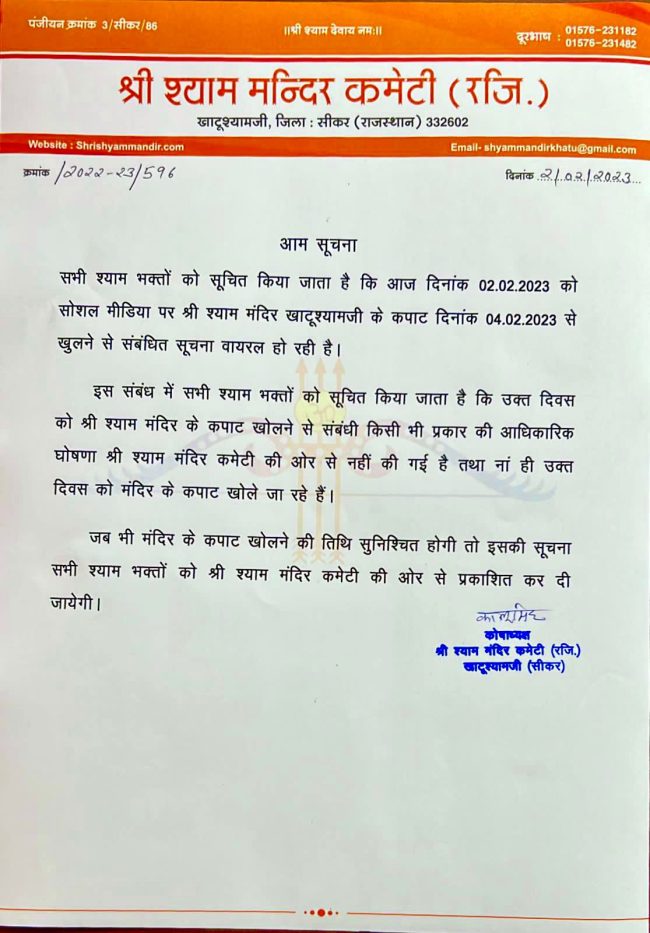 पंजीयन क्रमांक 3/सीकर/86
।।श्री श्याम देवाय नमः।।
दूरभाष : 01576-231182
01576-231482
श्री श्याम मन्दिर कमेटी (रजि.)
खाटूश्यामजी, जिला : सीकर (राजस्थान) 332602
Website : Shrishyammandir.com
Email- shyammandirkhatu@gmail.com
क्रमांक /2022-23/596
दिनांक 2/02/2023
आम सूचना
सभी श्याम भक्तों को सूचित किया जाता है कि आज दिनांक 02.02.2023 को
सोशल मीडिया पर श्री श्याम मंदिर खाटूश्यामजी के कपाट दिनांक 04.02.2023 से
खुलने से संबंधित सूचना वायरल हो रही है।
इस संबंध में सभी श्याम भक्तों को सूचित किया जाता है कि उक्त दिवस
को श्री श्याम मंदिर के कपाट खोलने से संबंधी किसी भी प्रकार की आधिकारिक
घोषणा श्री श्याम मंदिर कमेटी की ओर से नहीं की गई है तथा नां ही उक्त
दिवस को मंदिर के कपाट खोले जा रहे हैं।
जब भी मंदिर के कपाट खोलने की तिथि सुनिश्चित होगी तो इसकी सूचना
सभी श्याम भक्तों को श्री श्याम मंदिर कमेटी की ओर से प्रकाशित कर दी
जायेगी।
कोषाध्यक्ष
श्री श्याम मंदिर कमेटी (रजि.)
खाटूश्यामजी (सीकर)